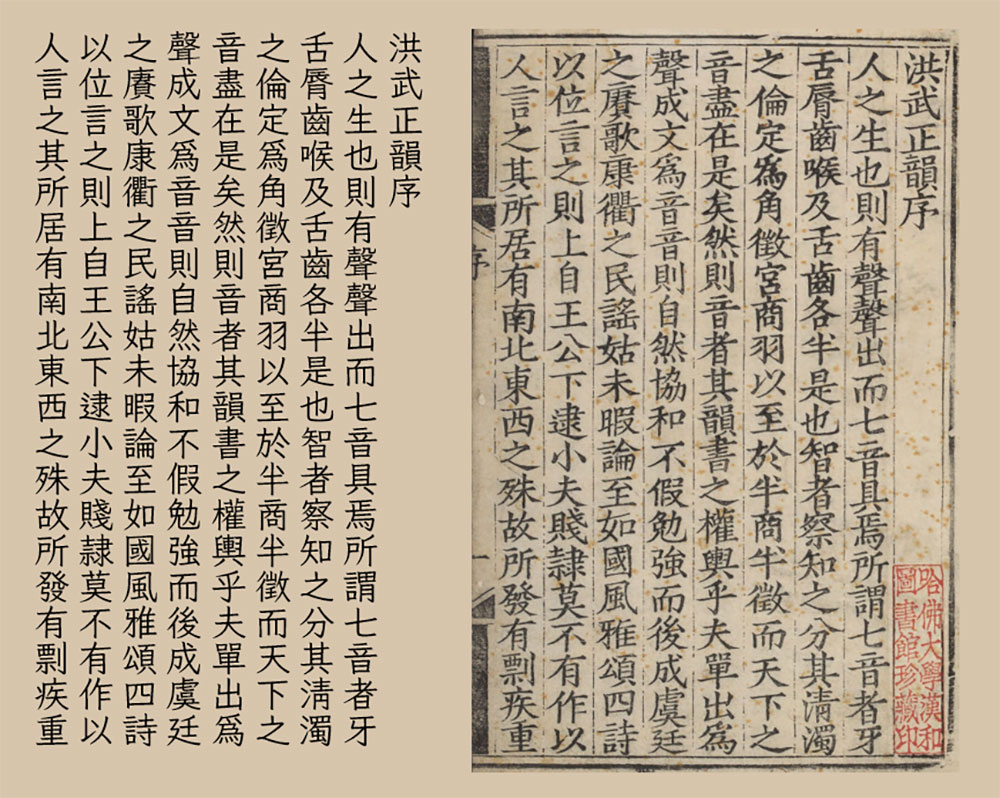 洪武正韻序
哈佛大學漢和
圖書館珍藏印
人之生也則有聲聲出而七音具焉所謂七音者牙
舌脣齒喉及舌齒各半是也智者察知之分其淸濁
之倫定爲角徵宮商羽以至於半商半徵而天下之
音盡在是矣然則音者其韻書之權輿乎夫單出爲
聲成文爲音音則自然協和不假勉強而後成虞廷
之賡歌康衢之民謠姑未暇論至如國風雅頌四詩
以位言之則上自王公下逮小夫賤隸莫不有作以
人言之其所居有南北東西之殊故所發有剽疾重
序
一
洪武正韻序
人之生也則有聲聲出而七音具焉所謂七音者牙
舌脣齒喉及舌齒各半是也智者察知之分其淸濁
之倫定爲角徵宮商羽以至於半商半徵而天下之
音盡在是矣然則音者其韻書之權輿乎夫單出爲
聲成文爲音音則自然協和不假勉強而後成虞廷
之賡歌康衢之民謠姑未暇論至如國風雅頌四詩
以位言之則上自王公下逮小夫賤隸莫不有作以
人言之其所居有南北東西之殊故所發有剽疾重